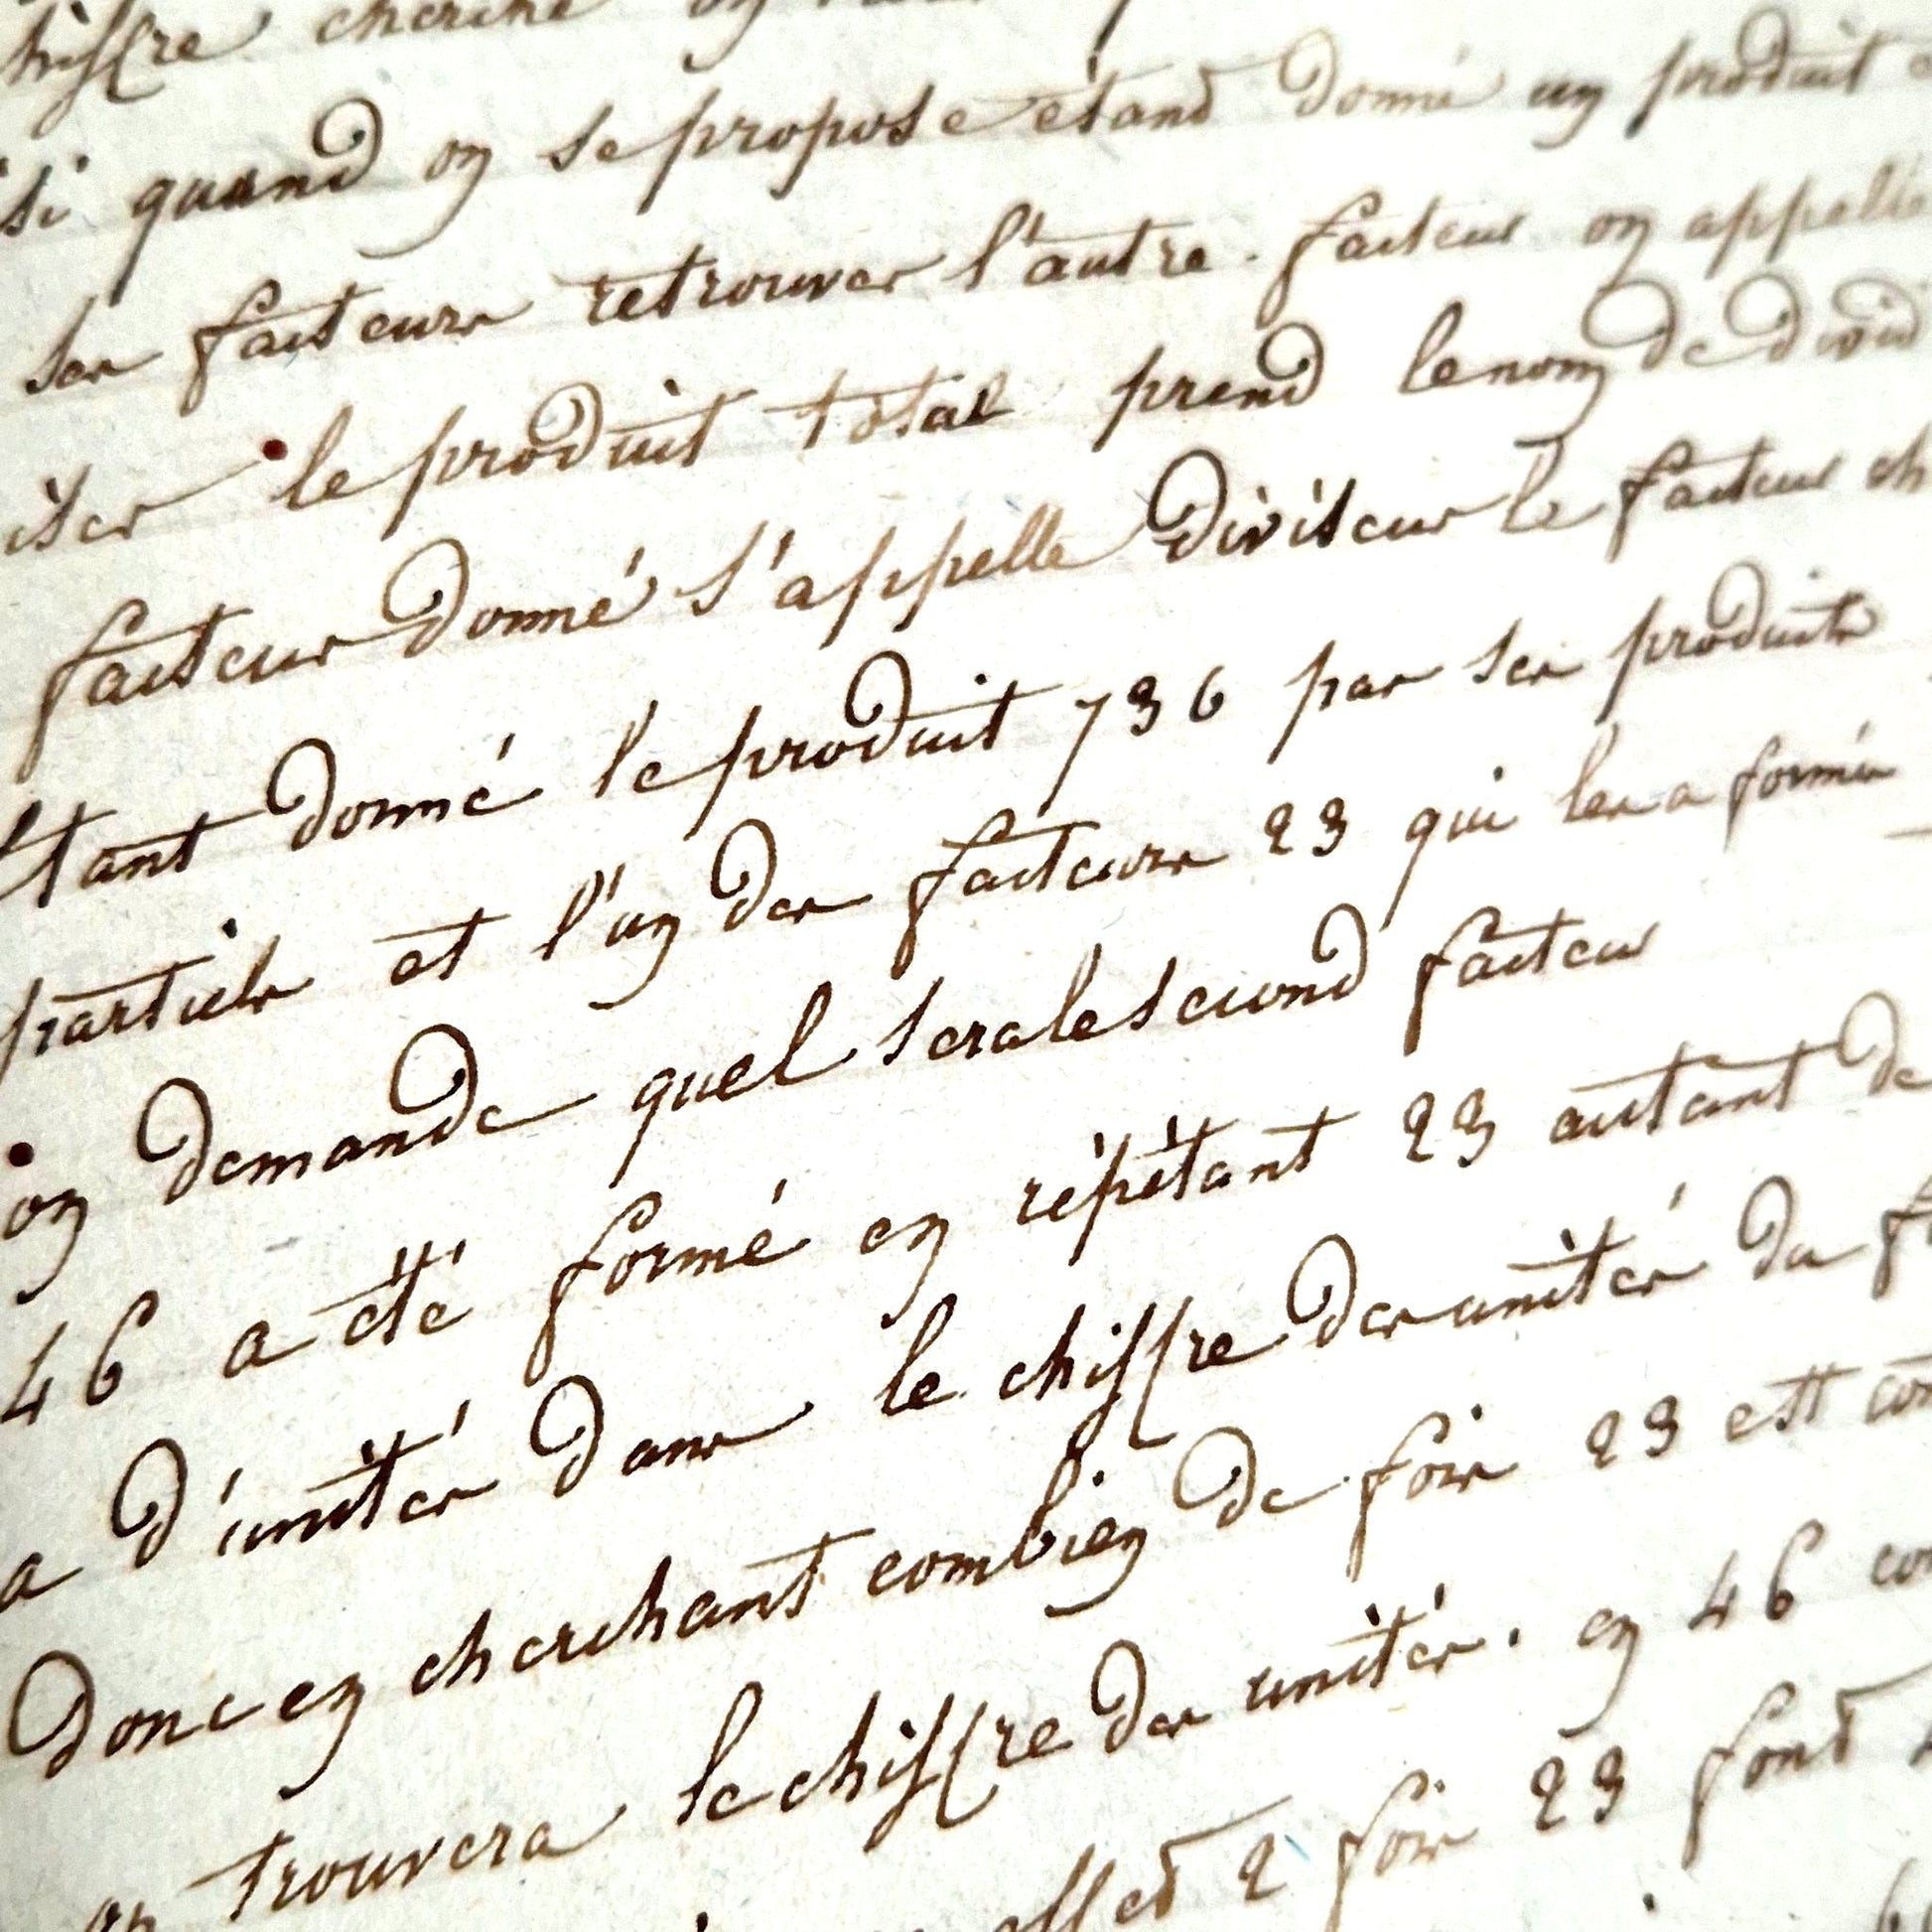 chiffre cherché
si quand on se propose étand donné un produit
ses facteurs retrouver l'autre. facteur on appelle
iser le produit total prend le nom de divid
facteur donné s'appelle diviseur le facteur ch
étant donné le produit 736 par ses produits
partiels et l'un des facteurs 23 qui les a formés
on demande quel sera le second facteur
46 a été formé en répétant 23 autant de
a d'unités dans le chiffre des unités du f
Donc en cherchant combien de fois 23 est con
on trouvera le chiffre des unités. en 46 con
effet 2 fois 23 font